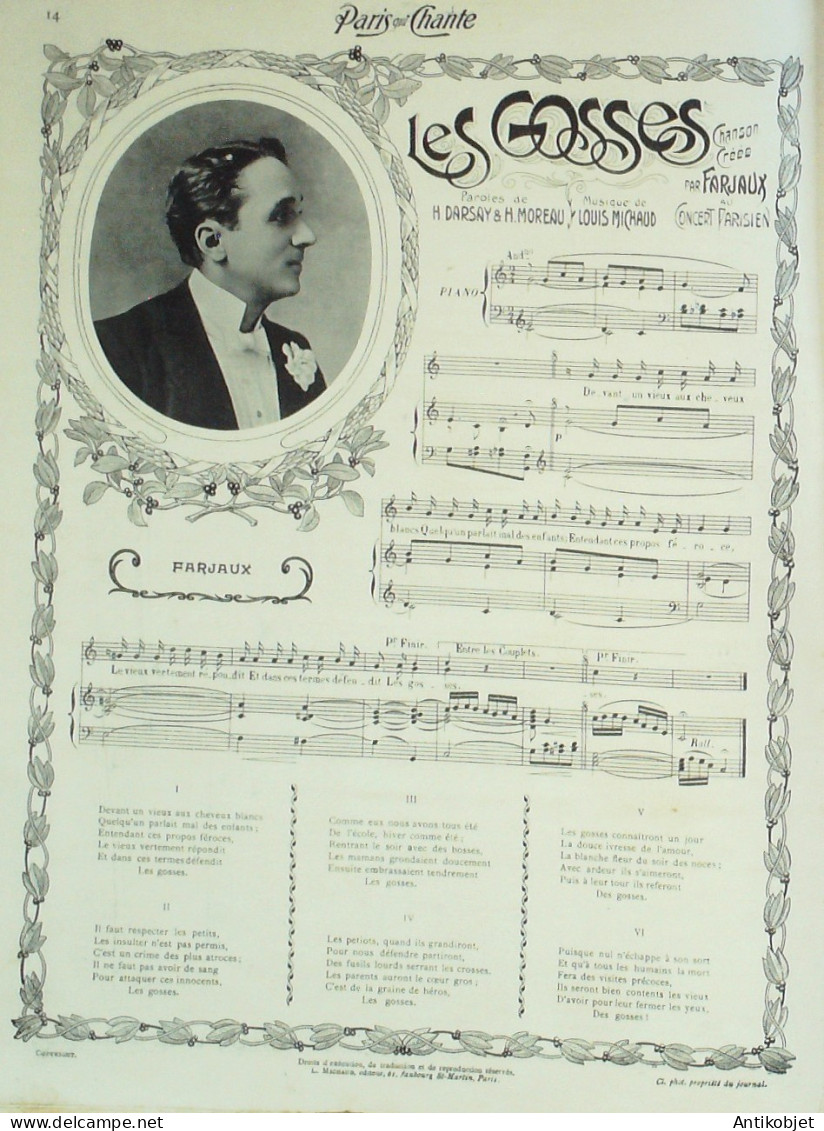 14
Paris qui Chante
Les Gosses
Chanson
Créée
PAR FARJAUX
AU
CONCERT PARISIEN
Paroles de
H. DARSAY & H. MOREAU
Musique de
LOUIS MICHAUD
PIANO
De_vant_un vieux aux che_veux
P
blancs Quelqu'un parlait mal des enfants; Entendant ces propos fé_ro_ce,
FARJAUX
Pr Finir. Entre les Couplets. Pr Finir.
Le vieux vertement ré_pon_dit Et dans ces termes défen_dit Les gos_ses. _ses.
Rall.
I
Devant un vieux aux cheveux blancs
Quelqu'un parlait mal des enfants;
Entendant ces propos féroces,
Le vieux vertement répondit
Et dans ces termes défendit
Les gosses.
II
Il faut respecter les petits,
Les insulter n'est pas permis,
C'est un crime des plus atroces;
Il ne faut pas avoir de sang
Pour attaquer ces innocents,
Les gosses.
III
Comme eux nous avons tous été
De l'école, hiver comme été;
Rentrant le soir avec des bosses,
Les mamans grondaient doucement
Ensuite embrassaient tendrement
Les gosses.
IV
Les petiots, quand ils grandiront,
Pour nous défendre partiront,
Des fusils lourds serrant les crosses,
Les parents auront le cœur gros;
C'est de la graine de héros,
Les gosses.
V
Les gosses connaîtront un jour
La douce ivresse de l'amour,
La blanche fleur du soir des noces;
Avec ardeur ils s'aimeront,
Puis à leur tour ils referont
Des gosses.
VI
Puisque nul n'échappe à son sort
Et qu'à tous les humains la mort
Fera des visites précoces,
Ils seront bien contents les vieux
D'avoir pour leur fermer les yeux,
Des gosses!
COPYRIGHT.
Droits d'exécution, de traduction et de reproduction réservés.
éditeur, faubourg St-Martin, Paris.
Cl. phot. propriété du journal.
Antikobjet